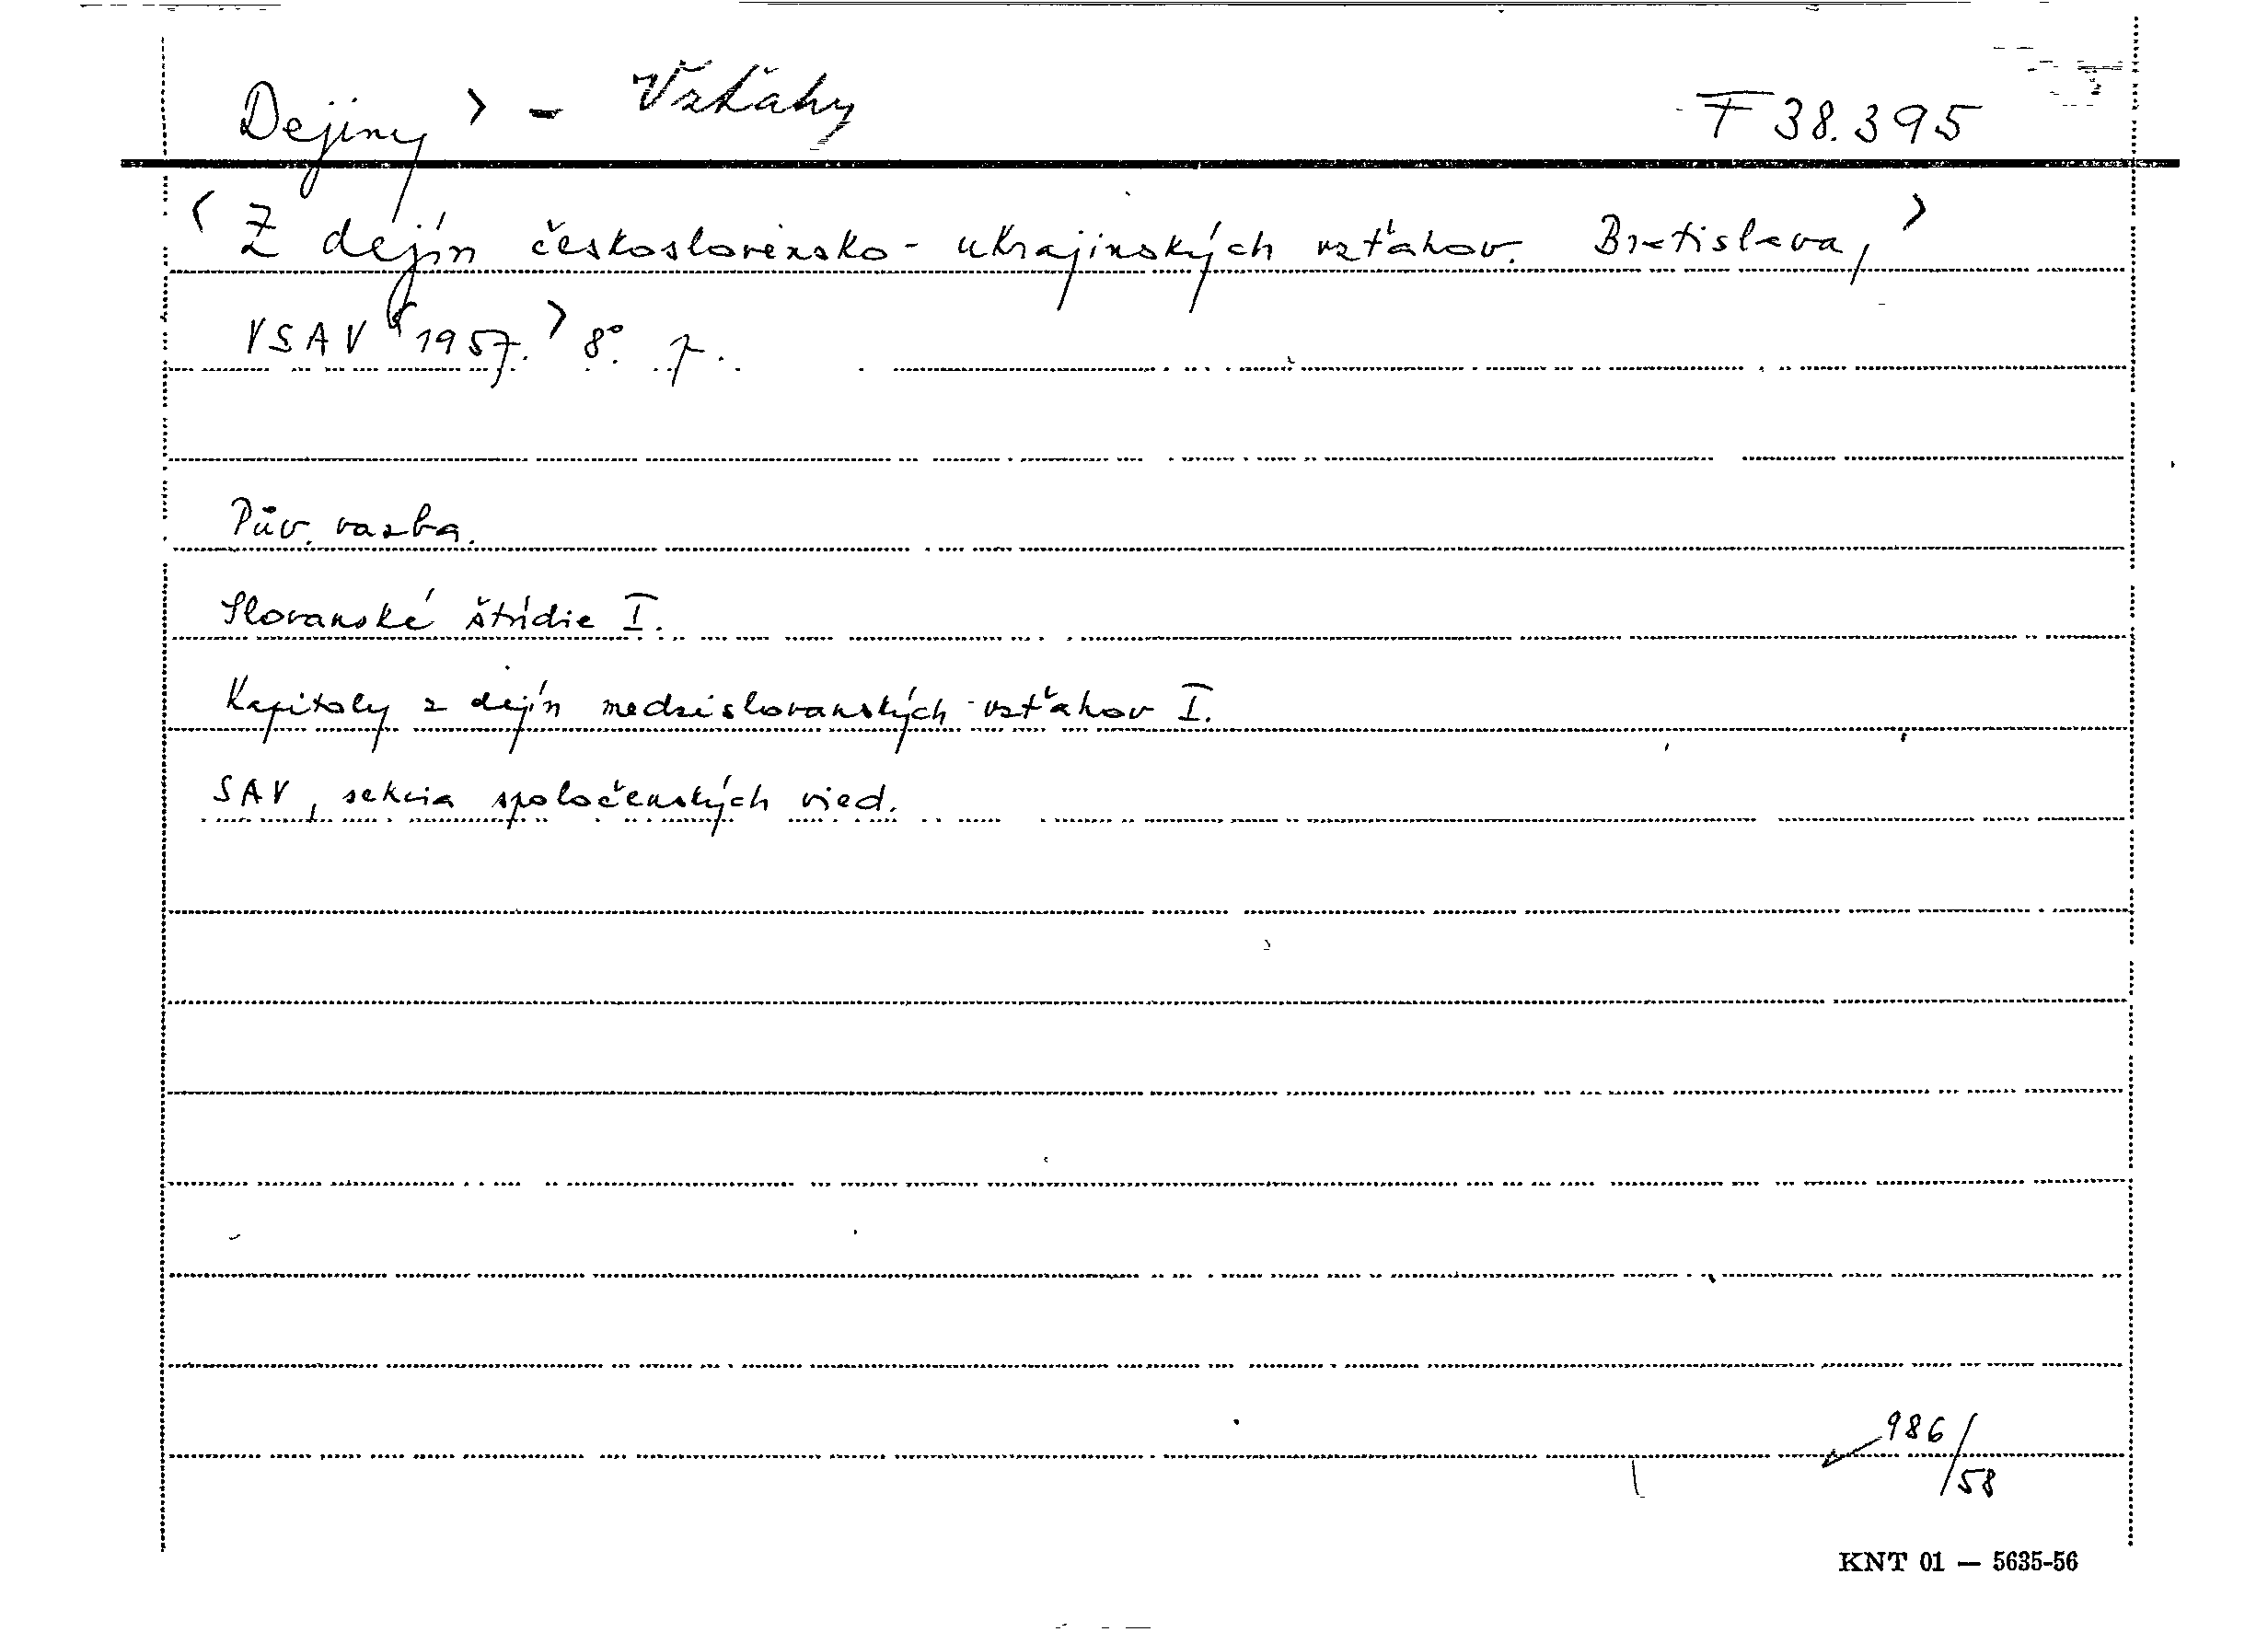 Dejiny > - Vzťahy F 38.395
< Z dejín československo-ukrajinských vzťahov. Bratislava, >
VSAV < 1957. > 8°. p.
Pův. vazba.
Slovanské štúdie I.
Kapitoly z dejín medzislovanských vzťahov I.
SAV, sekcia spoločenských vied.
986/58
KNT 01 — 5635-56